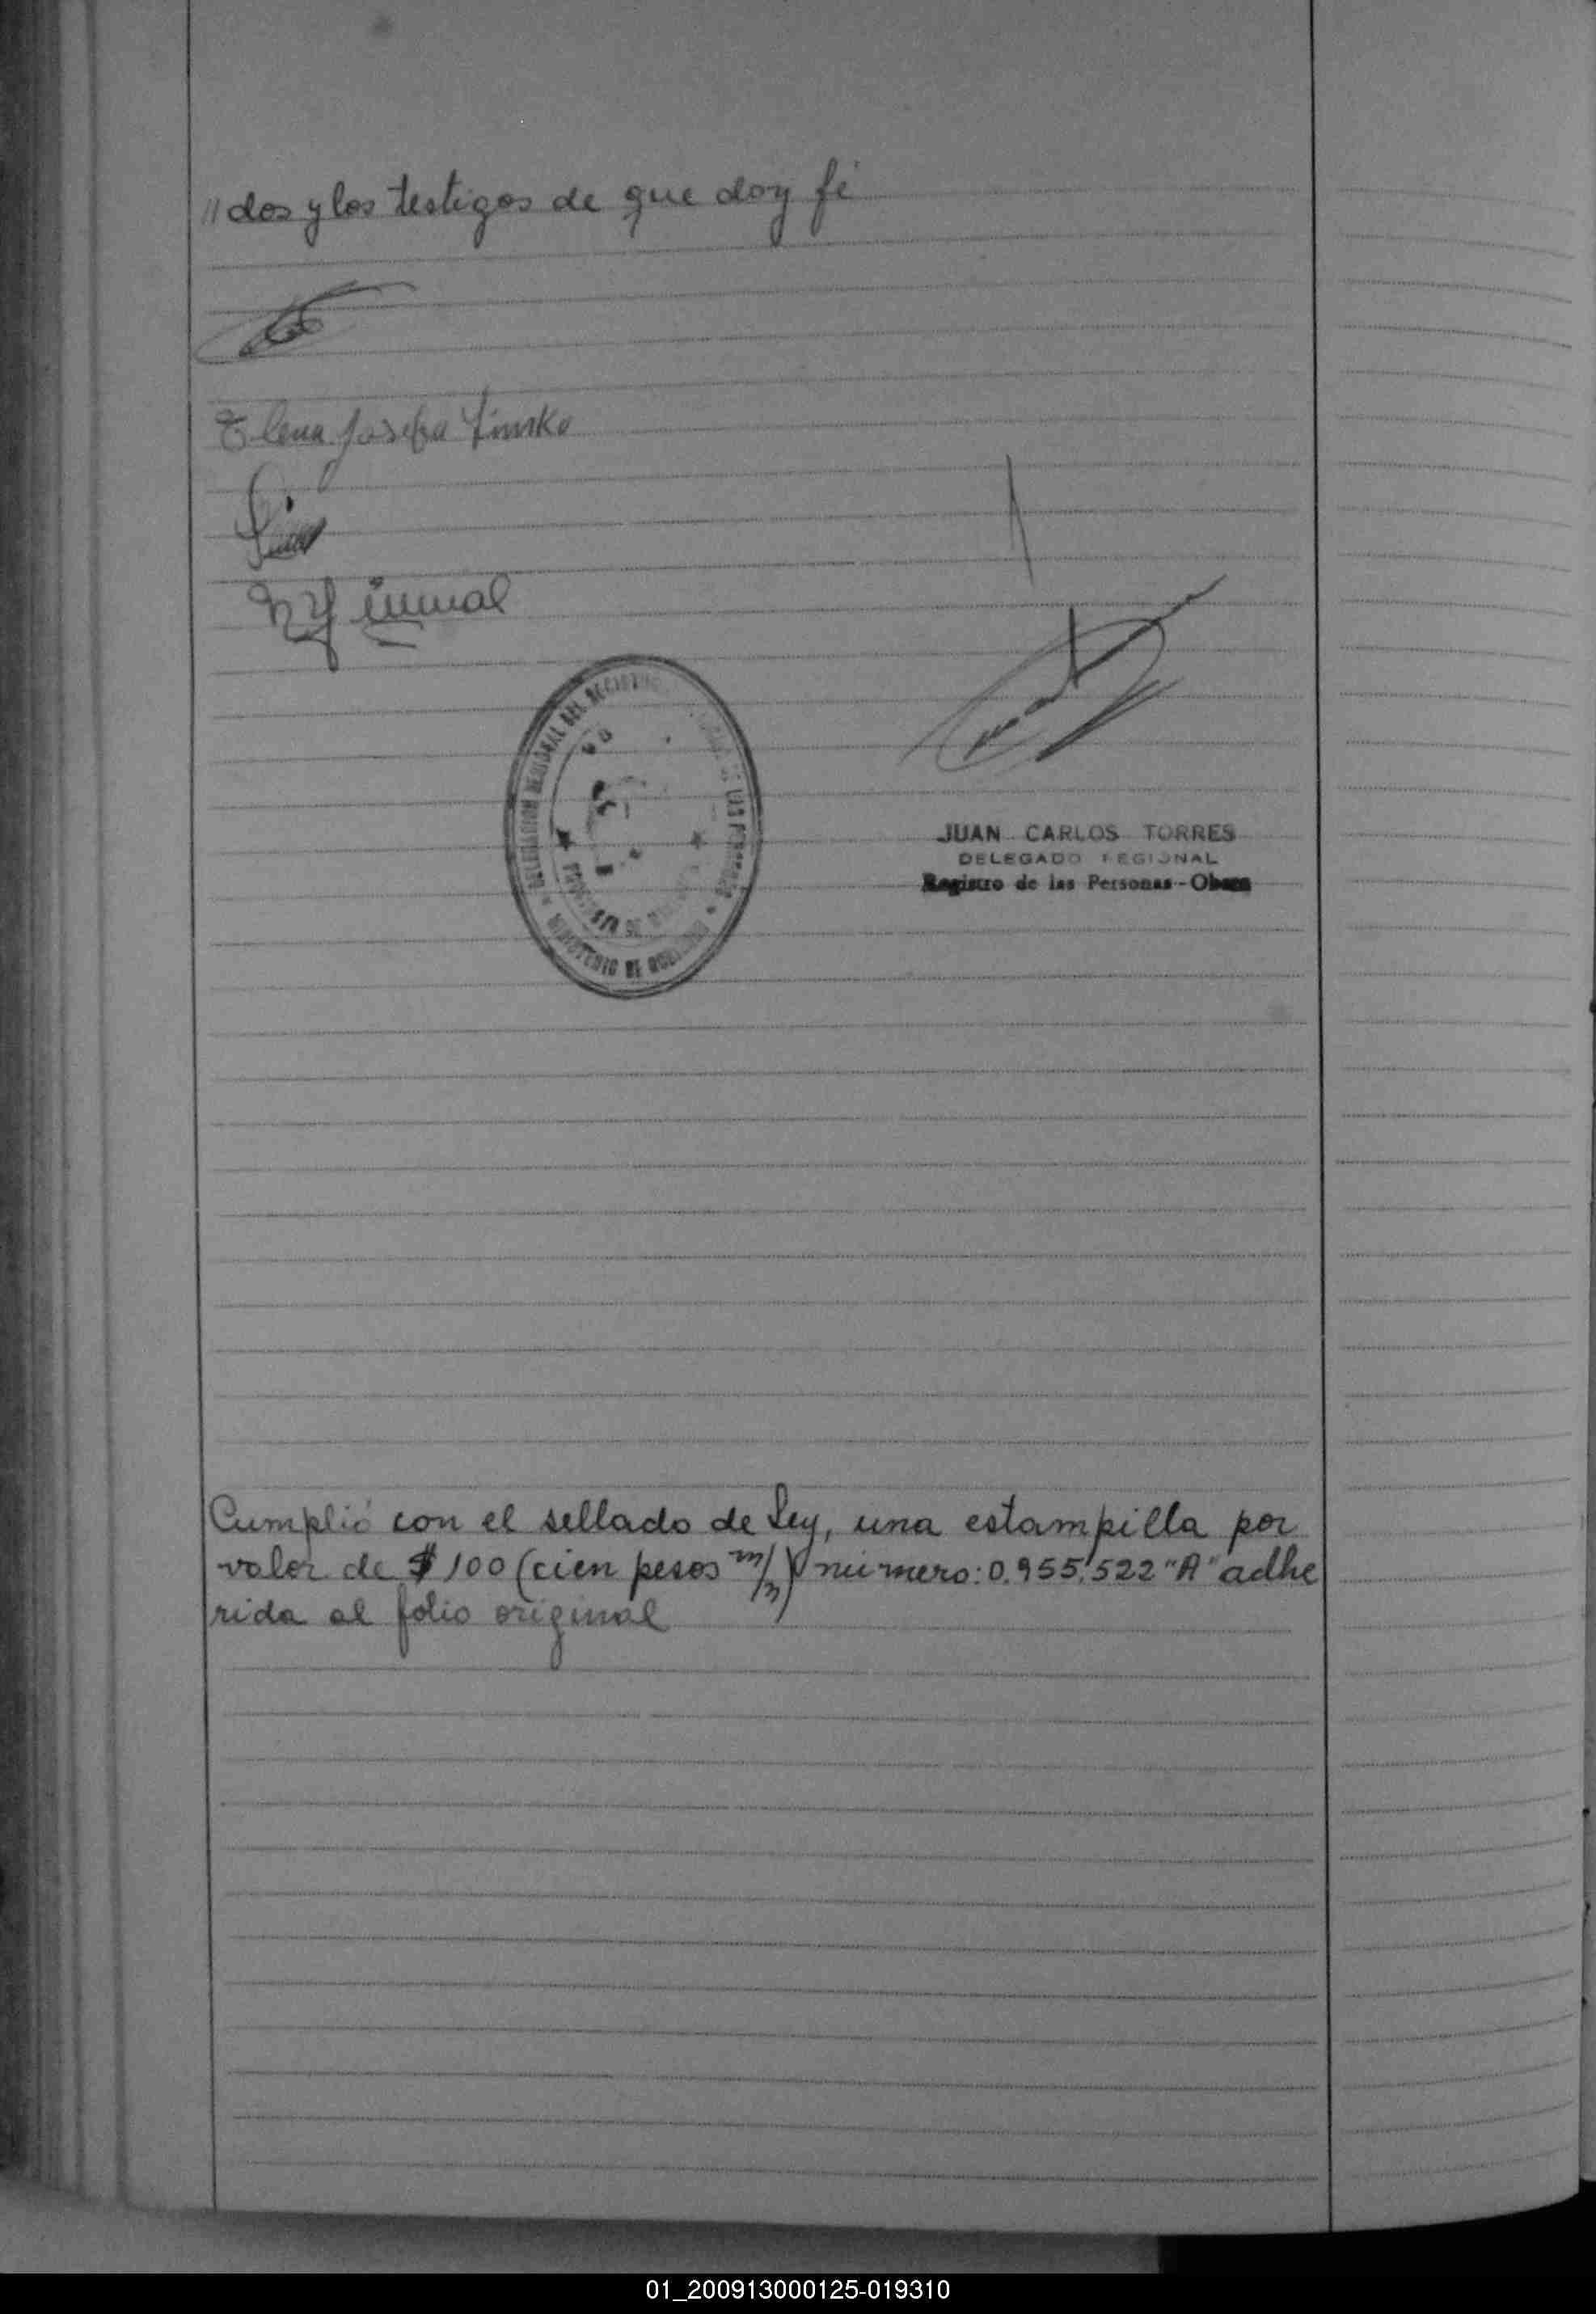 // dos y los testigos de que doy fé
Elena Josefa
DELEGACION REGIONAL DEL REGISTRO DE LAS PERSONAS
MINISTERIO DE GOBIERNO
PROVINCIA DE
JUAN CARLOS TORRES
DELEGADO REGIONAL
Registro de las Personas - Obera
Cumplió con el sellado de Ley, una estampilla por
valor de $ 100 (cien pesos m/n) número: 0.955.522 "A" adhe
rida al folio original
01_200913000125-019310